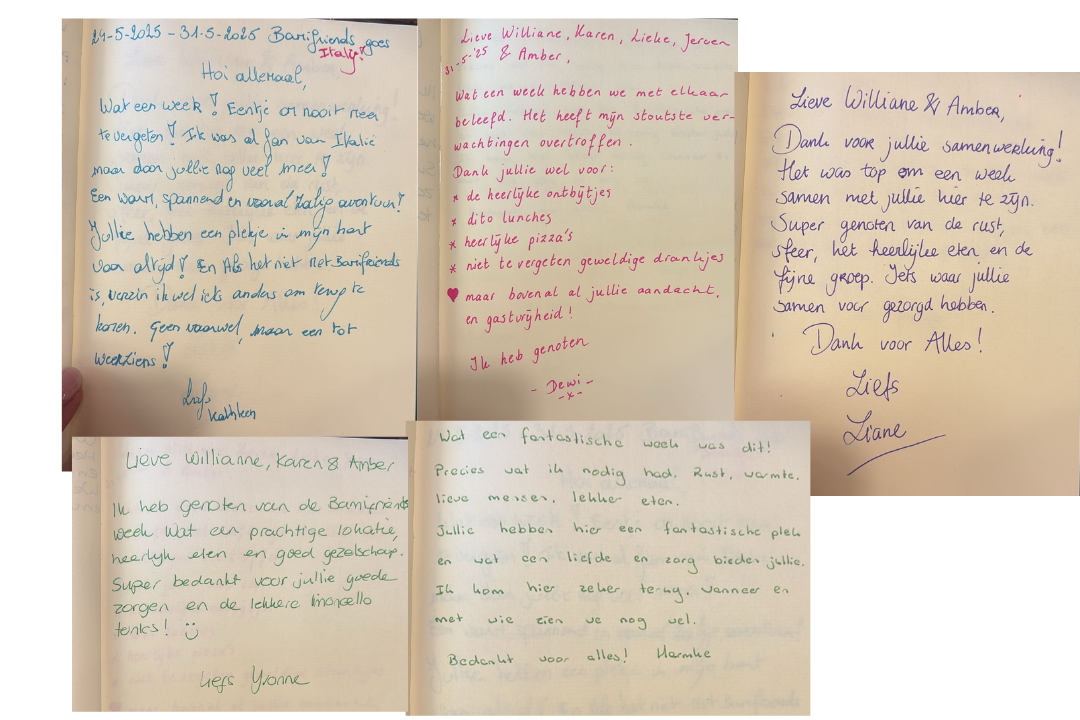 24-5-2025 - 31-5-2025 Bamifriends goes
Italy!
Hoi allemaal,
Wat een week! Eentje om nooit meer
te vergeten! Ik was al fan van Italië
maar door jullie nog veel meer!
Een warm, spannend en vooral zalig avontuur!
Jullie hebben een plekje in mijn hart
voor altijd! En Als het niet met Bamifriends
is, verzin ik wel iets anders om terug te
komen. Geen vaarwel, maar een tot
weerziens!
Liefs
Kathleen
Lieve Williane, Karen, Lieke, Jeroen
31-5-'25 & Amber,
Wat een week hebben we met elkaar
beleefd. Het heeft mijn stoutste ver-
wachtingen overtroffen.
Dank jullie wel voor:
* de heerlijke ontbijtjes
* dito lunches
* heerlijke pizza's
* niet te vergeten geweldige drankjes
♥ maar bovenal al jullie aandacht,
en gastvrijheid!
Ik heb genoten
- Dewi -
-x-
Lieve Williane & Amber,
Dank voor jullie samenwerking!
Het was top om een week
samen met jullie hier te zijn.
Super genoten van de rust,
sfeer, het heerlijke eten en de
fijne groep. Iets waar jullie
samen voor gezorgd hebben.
Dank voor Alles!
Liefs
Liane
Lieve Willianne, Karen & Amber
Ik heb genoten van de Bamifriends
week. Wat een prachtige lokatie,
heerlijk eten en goed gezelschap.
Super bedankt voor jullie goede
zorgen en de lekkere limoncello
tonics! :)
Liefs Yvonne
Wat een fantastische week was dit!
Precies wat ik nodig had. Rust, warmte,
lieve mensen, lekker eten.
Jullie hebben hier een fantastische plek
en wat een liefde en zorg bieden jullie.
Ik kom hier zeker terug, wanneer en
met wie zien we nog wel.
Bedankt voor alles! Harmke